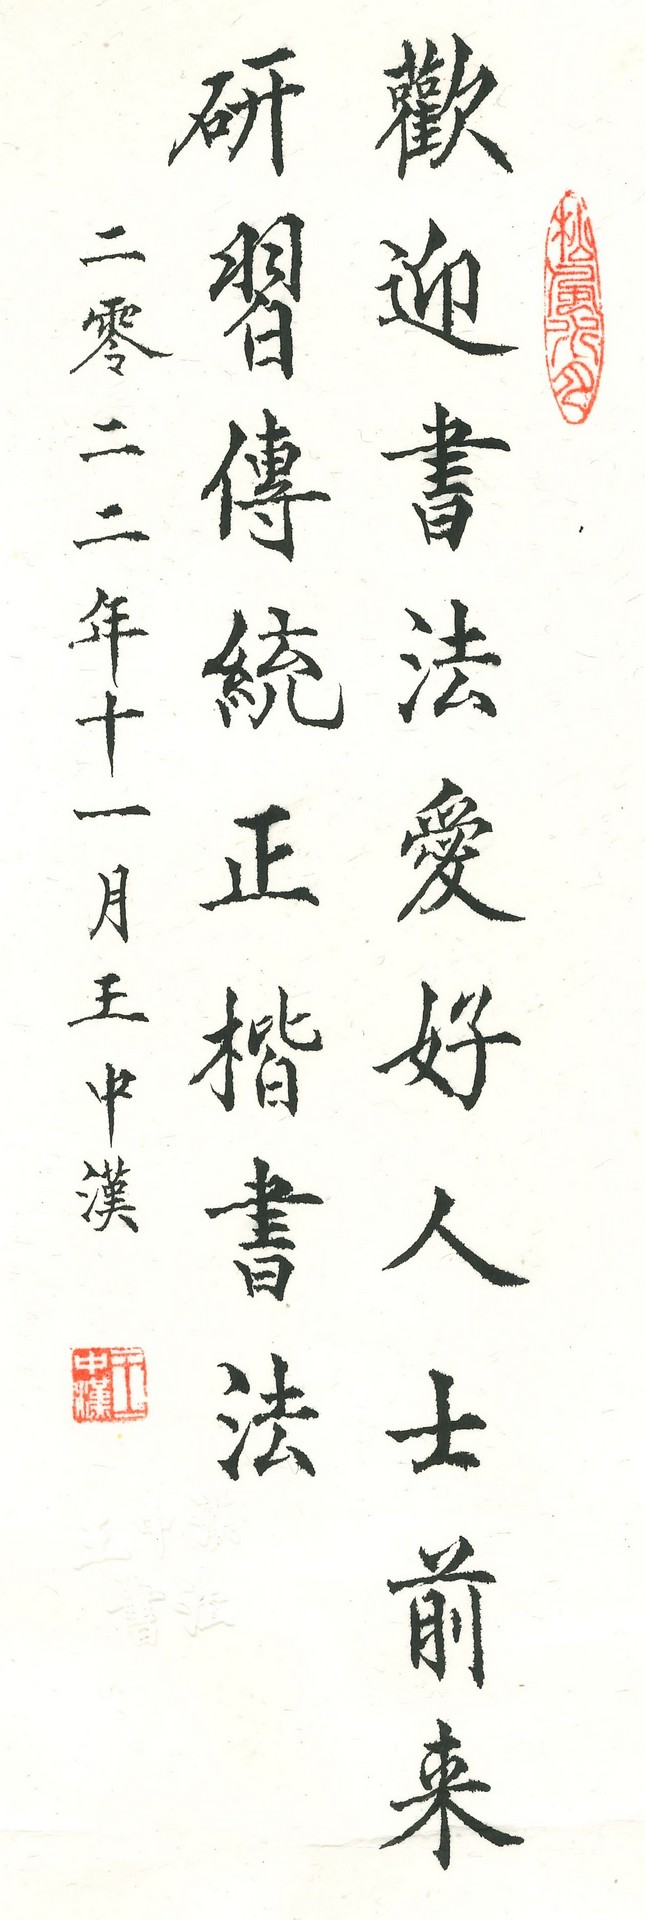 歡迎書法愛好人士前来
研習傳統正楷書法
二零二二年十一月王中漢
王中漢